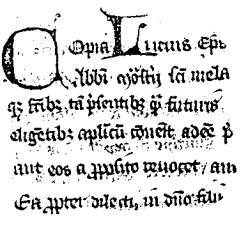 COpia Lucius Epi
Abbi mōstrij scī mela
qz frībz tā psentibz q̄ futuris
eligētibz aplicū conēit adee p
unt eos a pposito reuocet / aut
Ea ppter dilecti, in dn̄o filij